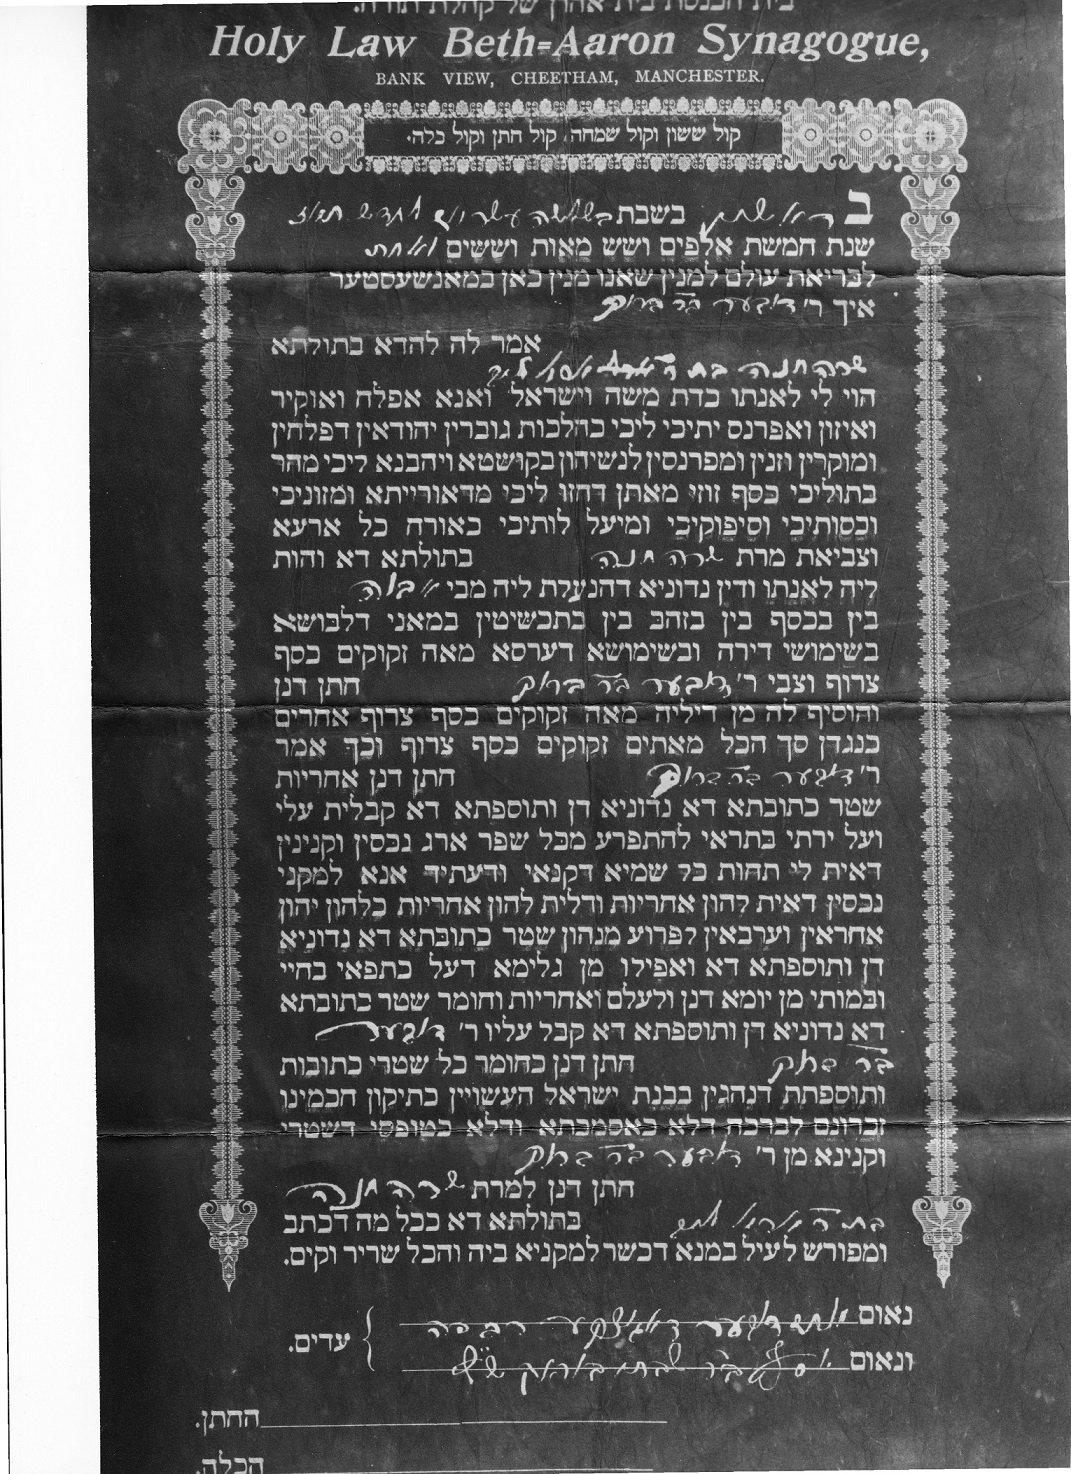 בית הכנסת בית אהרון של קהלת תורה.
Holy Law Beth=Aaron Synagogue,
BANK VIEW, CHEETHAM, MANCHESTER.
קול ששון וקול שמחה, קול חתן וקול כלה.
ב בשבת
שנת חמשת אלפים ושש מאות וששים ואחת
לבריאת עולם למנין שאנו מנין כאן במאנשעסטער
איך ר׳
אמר לה להדא בתולתא
שרה חנה בת
הוי לי לאנתו כדת משה וישראל ואנא אפלח ואוקיר
ואיזון ואפרנס יתיכי ליכי כהלכות גוברין יהודאין דפלחין
ומוקרין וזנין ומפרנסין לנשיהון בקושטא ויהבנא ליכי מהר
בתוליכי כסף זוזי מאתן דחזו ליכי מדאורייתא ומזוניכי
וכסותיכי וסיפוקיכי ומיעל לותיכי כאורח כל ארעא
וצביאת מרת שרה חנה בתולתא דא והות
ליה לאנתו ודין נדוניא דהנעלת ליה מבי אבוה
בין בכסף בין בזהב בין בתכשיטין במאני דלבושא
בשימושי דירה ובשימושא דערסא מאה זקוקים כסף
צרוף וצבי ר׳ חתן דנן
והוסיף לה מן דיליה מאה זקוקים כסף צרוף אחרים
כנגדן סך הכל מאתים זקוקים כסף צרוף וכך אמר
ר׳ חתן דנן אחריות
שטר כתובתא דא נדוניא דן ותוספתא דא קבלית עלי
ועל ירתי בתראי להתפרע מכל שפר ארג נכסין וקנינין
דאית לי תחות כל שמיא דקנאי ודעתיד אנא למקני
נכסין דאית להון אחריות ודלית להון אחריות כלהון יהון
אחראין וערבאין לפרוע מנהון שטר כתובתא דא נדוניא
דן ותוספתא דא ואפילו מן גלימא דעל כתפאי בחיי
ובמותי מן יומא דנן ולעלם ואחריות וחומר שטר כתובתא
דא נדוניא דן ותוספתא דא קבל עליו ר׳
חתן דנן כחומר כל שטרי כתובות
ותוספתת דנהגין בבנת ישראל העשויין כתיקון חכמינו
זכרונם לברכה דלא כאסמכתא ודלא כטופסי דשטרי
וקנינא מן ר׳
חתן דנן למרת שרה חנה
בתולתא דא ככל מה דכתב
ומפורש לעיל במנא דכשר למקניא ביה והכל שריר וקים.
נאום
עדים.
ונאום
החתן.
הכלה.